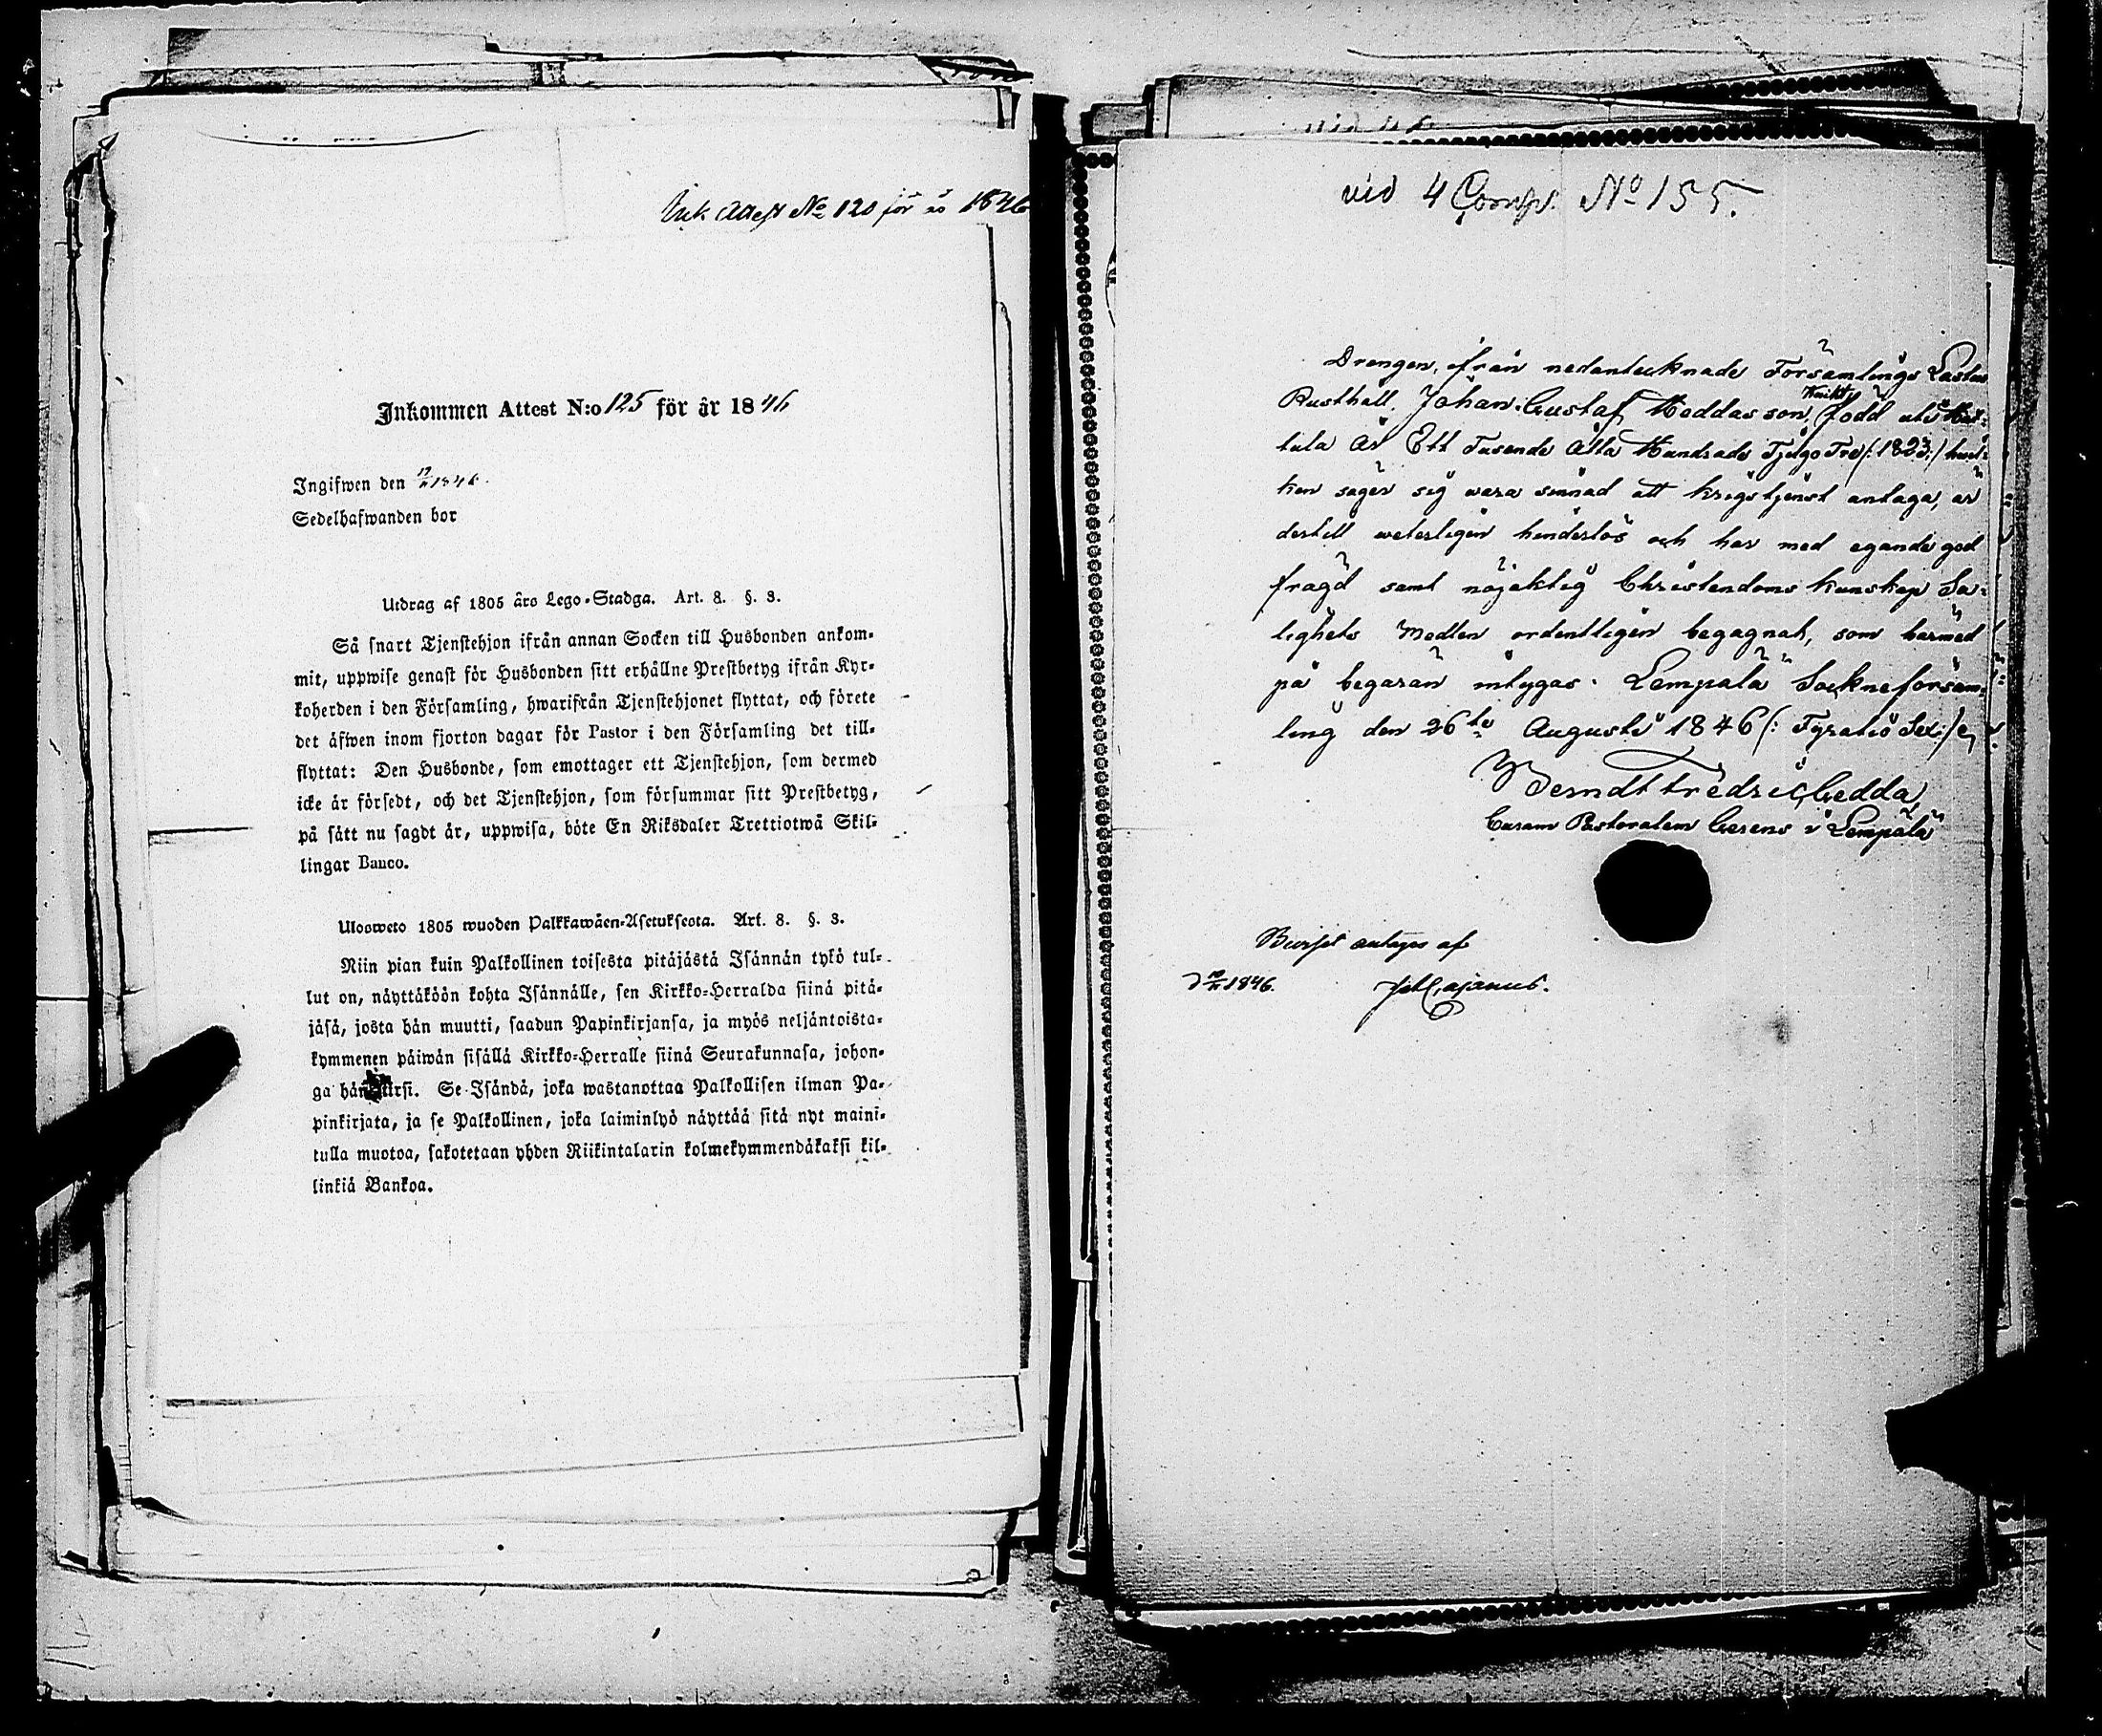 Ink. Attest No 120 för år 1846
Inkommen Attest N:o 125 för år 1846
Ingifwen den 12/11 1846.
Sedelhafwanden bor
Utdrag af 1805 års Lego-Stadga. Art. 8. §. 3.
Så snart Tjenstehjon ifrån annan Socken till Husbonden ankom-
mit, uppwise genast för Husbonden sitt erhållne Prestbetyg ifrån Kyr-
koherden i den Församling, hwarifrån Tjenstehjonet flyttat, och förete
det äfwen inom fjorton dagar för Pastor i den Församling det till-
flyttat: Den Husbonde, som emottager ett Tjenstehjon, som dermed
icke är försedt, och det Tjenstehjon, som försummar sitt Prestbetyg,
på sått nu sagdt är, uppwisa, böte En Riksdaler Trettiotwå Skil-
lingar Banco.
Ulosweto 1805 wuoden Palkkawäen-Asetuksesta. Art. 8. §. 3.
Niin pian kuin Palkollinen toisesta pitäjästä Isännän tykö tul-
lut on, näyttäköön kohta Isännälle, sen Kirkko-Herralda siinä pitä-
jäsä, josta hän muutti, saadun Papinkirjansa, ja myös neljäntoista-
kymmenen päiwän sisällä Kirkko-Herralle siinä Seurakunnasa, johon-
ga hän siirsi. Se Isändä, joka wastanottaa Palkollisen ilman Pa-
pinkirjata, ja se Palkollinen, joka laiminlyö näyttää sitä nyt maini-
tulla muotoa, sakotetaan yhden Riikintalarin kolmekymmendäkaksi kil-
linkiä Bankoa.
vid 4 Comp. No 155.
Drengen, ifrån nedantecknade Församlings Lastus
Rusthåll, Johan Gustaf Heddasson, Knikt, född uti Hat-
tula År Ett Tusende Åtta Hundrade Tjugo Tre (: 1823 :) hwil-
ken säger sig wara sinnad att krigstjenst antaga, är
dertill weterligen hinderlös och har med egande god
frägd samt nöjaktig Christendoms kunskap Sa-
lighets Medlen ordentligen begagnat, som härmed
på begäran intygas. Lempälä Sockneförsam-
ling den 26te Augusti 1846 (: Fyratio Sex :)
Berndt Fredric Gedda,
Curam Pastoralem Gerens i Lempälä
Beviset antages af
d 10/11 1846. Cajanus.